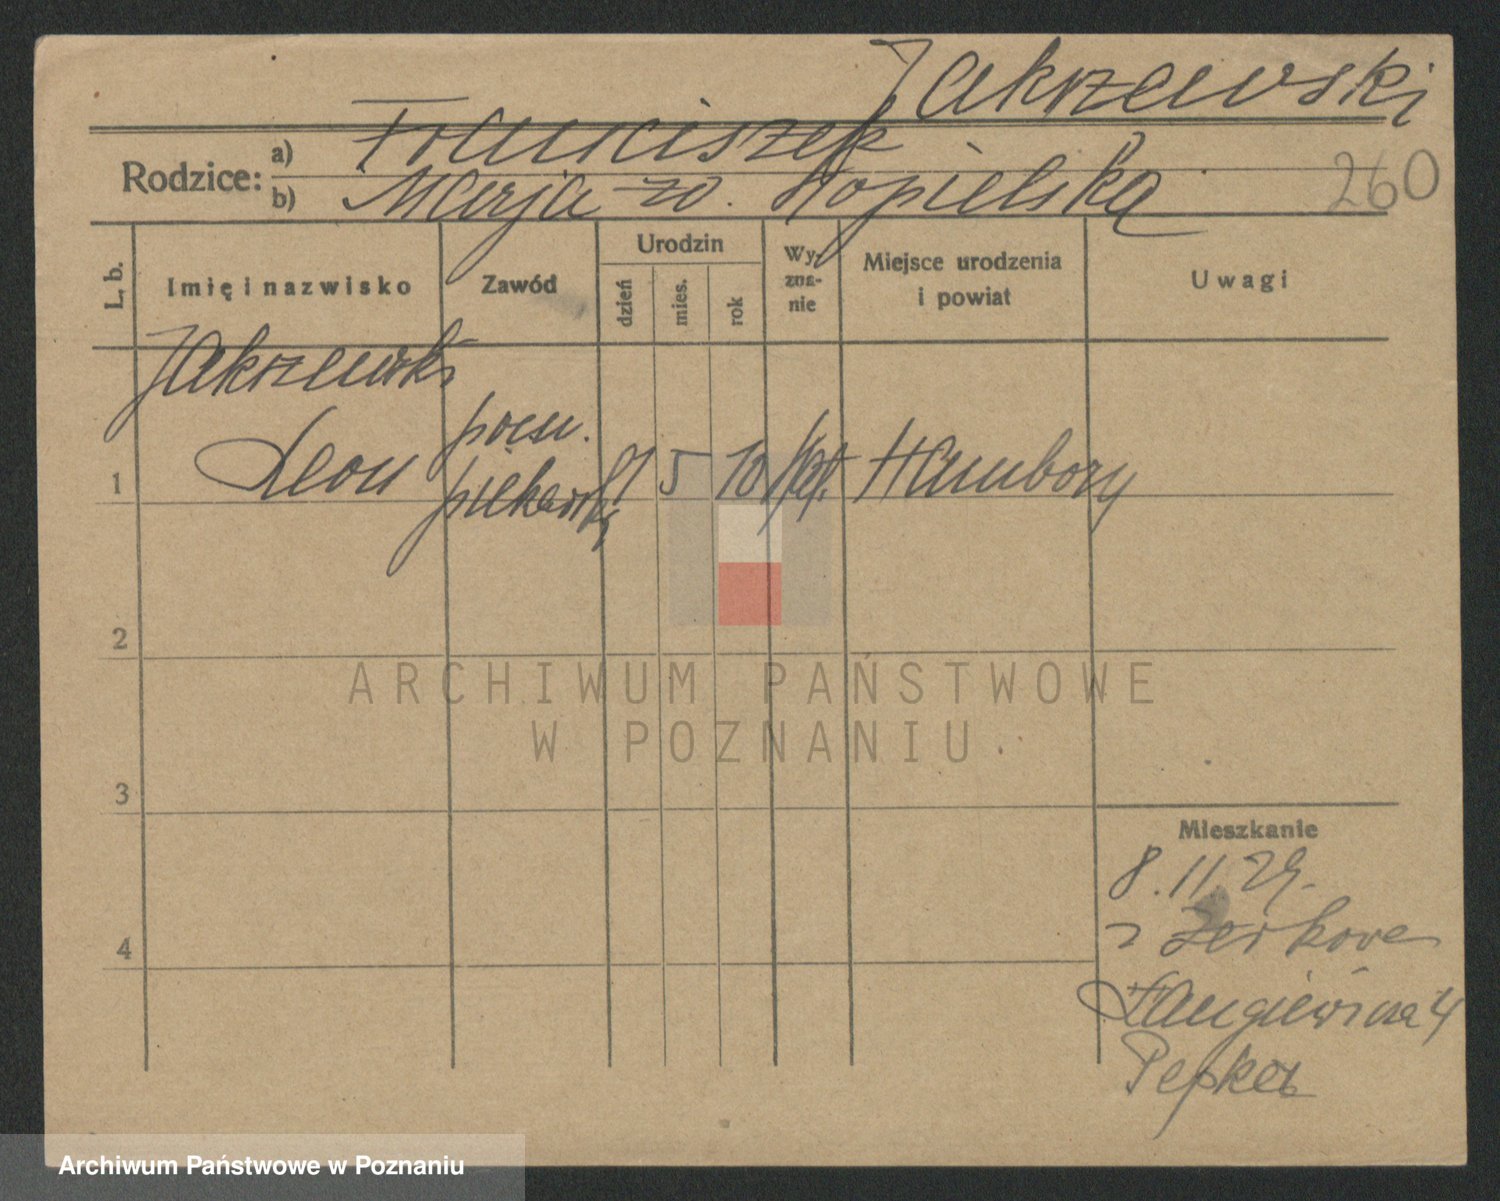 Jakrzewski
Rodzice:
a) Franciszek
b) Marja zd. Kopielska
260
L. b.
Imię i nazwisko
Zawód
Urodzin
dzień
mies.
rok
Wy-
zna-
nie
Miejsce urodzenia
i powiat
Uwagi
Jakrzewski
1 Leon
pom.
piekarski
5 10 kat. Hambory
2
3
4
Mieszkanie
8.11.29.
z Żerkowa
Langiewicza 4
ARCHIWUM PAŃSTWOWE
W POZNANIU
Archiwum Państwowe w Poznaniu